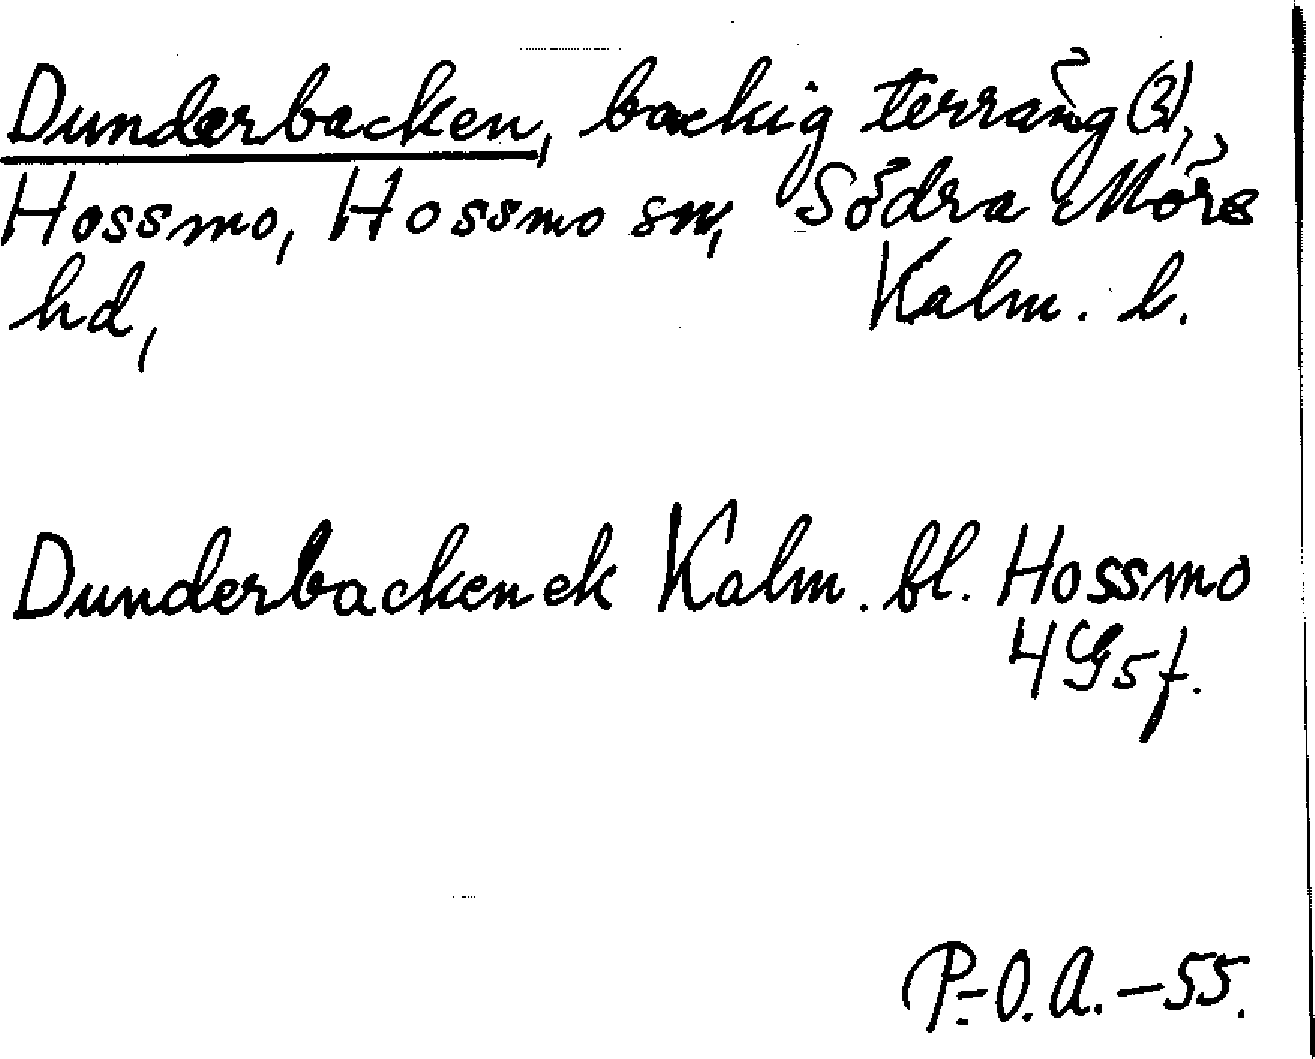 Dunderbacken, backig terräng (?),
Hossmo, Hossmo sn, Södra Möre
hd, Kalm. l.
Dunderbacken ek Kalm. bl. Hossmo
4G5f.
P.-O.A.-55.